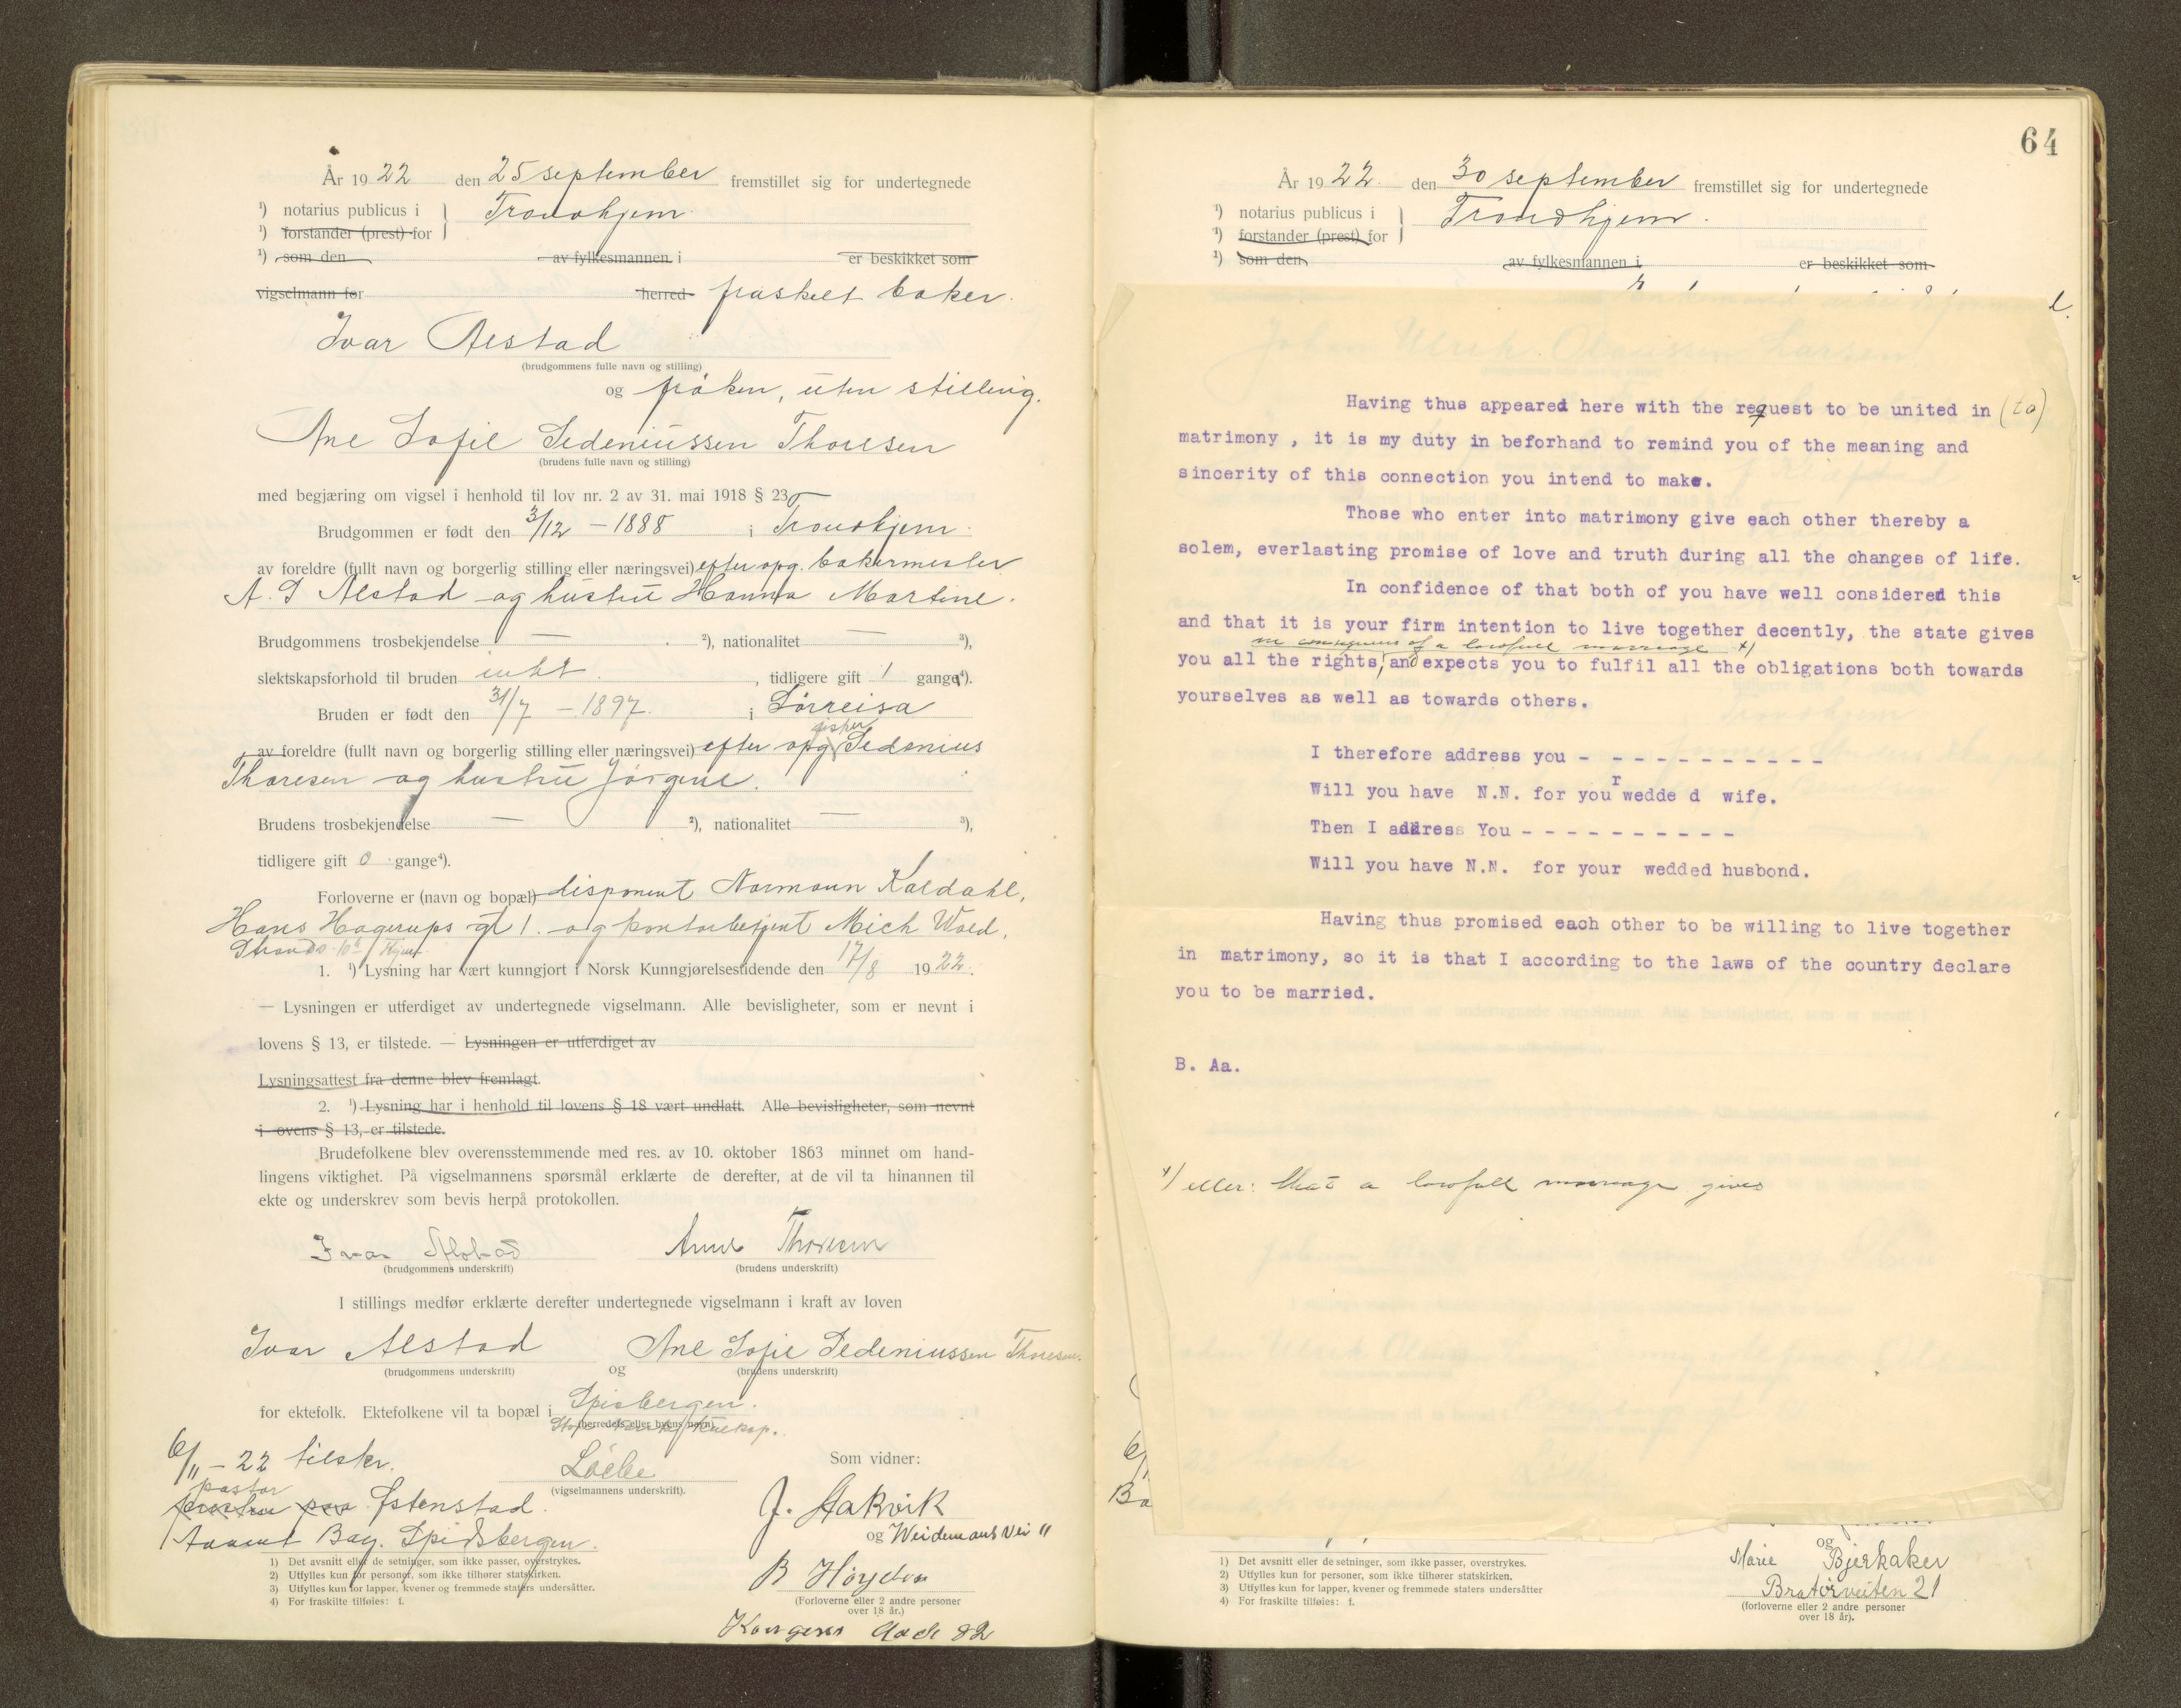 År 1922 den 25 september fremstillet sig for undertegnede
¹) notarius publicus i
Trondhjem
¹) forstander (prest) for
¹) som den av fylkesmannen i er beskikket som
vigselmann for herred fraskilt baker.
Ivar Alstad
(brudgommens fulle navn og stilling)
og frøken, uten stilling.
Ane Sofie Sedeniussen Thoresen
(brudens fulle navn og stilling)
med begjæring om vigsel i henhold til lov nr. 2 av 31. mai 1918 § 23
Brudgommen er født den 3/12 – 1888 i Trondhjem.
av foreldre (fullt navn og borgerlig stilling eller næringsvei) efter opg. bakermester
A. S Alstad og hustru Hanna Martine.
Brudgommens trosbekjendelse — ²), nationalitet — ³),
slektskapsforhold til bruden intet, tidligere gift 1 gange⁴).
Bruden er født den 31/7 – 1897. i Sørreisa
fisker
av foreldre (fullt navn og borgerlig stilling eller næringsvei) efter opg Sedenius
Thoresen og hustru Jørgine.
Brudens trosbekjendelse — ²), nationalitet — ³),
tidligere gift 0 gange⁴).
Forloverne er (navn og bopæl) disponent Normann Kaldahl,
Hans Hagerups gt 1. og kontorbetjent Mich Wold,
1. ¹) Lysning har vært kunngjort i Norsk Kunngjørelsestidende den 17/8 1922.
— Lysningen er utferdiget av undertegnede vigselmann. Alle bevisligheter, som er nevnt i
lovens § 13, er tilstede. — Lysningen er utferdiget av
Lysningsattest fra denne blev fremlagt.
2. ¹) Lysning har i henhold til lovens § 18 vært undlatt. Alle bevisligheter, som nevnt
i ovens § 13, er tilstede.
Brudefolkene blev overensstemmende med res. av 10. oktober 1863 minnet om hand-
lingens viktighet. På vigselmannens spørsmål erklærte de derefter, at de vil ta hinannen til
ekte og underskrev som bevis herpå protokollen.
Ivar Alstad Anne Thoresen
(brudgommens underskrift) (brudens underskrift)
I stillings medfør erklærte derefter undertegnede vigselmann i kraft av loven
Ivar Alstad og Ane Sofie Sedeniussen Thoresen.
(brudgommens underskrift) (brudens underskrift)
for ektefolk. Ektefolkene vil ta bopæl i Spisbergen.
(herredets eller byens navn)
6/11 – 22 tilskr.
pastor
Østenstad.
Advent Bay. Spidsbergen.
(vigselmannens underskrift).
Som vidner:
J. Hakvik
og Weidemans vei 11
(Forloverne eller 2 andre personer
over 18 år.)
1) Det avsnitt eller de setninger, som ikke passer, overstrykes.
2) Utfylles kun for personer, som ikke tilhører statskirken.
3) Utfylles kun for lapper, kvener og fremmede staters undersåtter.
4) For fraskilte tilføies: f.
64
År 1922. den 30 september fremstillet sig for undertegnede
¹) notarius publicus i
Trondhjem.
¹) forstander (prest) for
¹) som den av fylkesmannen i er beskikket som
Having thus appeared here with the request to be united in (to)
matrimony , it is my duty in beforhand to remind you of the meaning and
sincerity of this connection you intend to make.
Those who enter into matrimony give each other thereby a
solem, everlasting promise of love and truth during all the changes of life.
In confidence of that both of you have well considered this
and that it is your firm intention to live together decently, the state gives
of a lowfull marriage x)
you all the rights, and expects you to fulfil all the obligations both towards
yourselves as well as towards others.
I therefore address you - - - - - - - - - - -
Will you have N.N. for your wedde d wife.
Then I address You - - - - - - - - - -
Will you have N.N. for your wedded husbond.
Having thus promised each other to be willing to live together
in matrimony, so it is that I according to the laws of the country declare
you to be married.
B. Aa.
x) eller: that a lowfull marriage gives
og
Marie Bjerkaker
Bratørveiten 21
(forloverne eller 2 andre personer
over 18 år).
1) Det avsnitt eller de setninger, som ikke passer, overstrykes.
2) Utfylles kun for personer, som ikke tilhører statskirken.
3) Utfylles kun for lapper, kvener og fremmede staters undersåtter
4) For fraskilte tilføies: f.